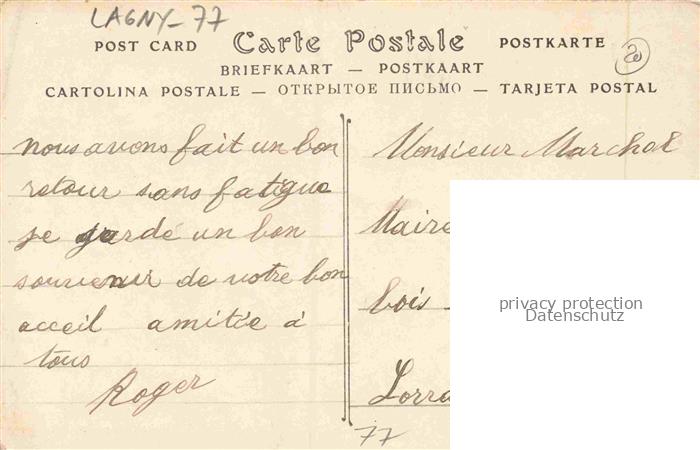 LAGNY - 77
POST CARD Carte Postale POSTKARTE
20
BRIEFKAART — POSTKAART
CARTOLINA POSTALE — ОТКРЫТОЕ ПИСЬМО — TARJETA POSTAL
nous avons fait un bon
retour sans fatigue
je garde un bon
souvenir de votre bon
acceil amitée a
tous
Roger
Monsieur Marchal
Maire
bois
Lorra
77
privacy protection
Datenschutz